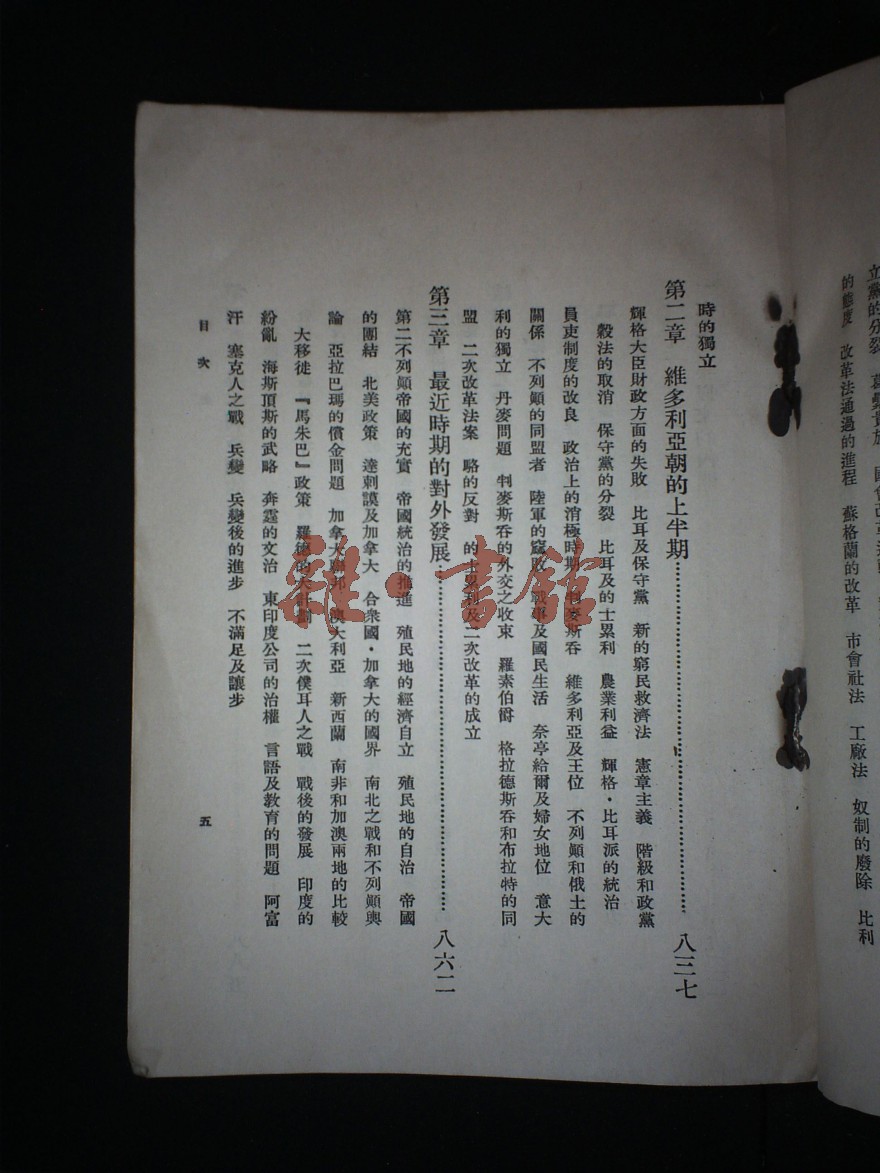 立黨的分裂
的態度 改革法通過的進程 蘇格蘭的改革 市會社法 工廠法 奴制的廢除 比利
時的獨立
第二章 維多利亞朝的上半期……八三七
輝格大臣財政方面的失敗 比耳及保守黨 新的窮民救濟法 憲章主義 階級和政黨
穀法的取消 保守黨的分裂 比耳及的士累利 農業利益 輝格·比耳派的統治
員吏制度的改良 政治上的消極時期 麥斯吞 維多利亞及王位 不列顛和俄土的
關係 不列顛的同盟者 陸軍的窳敗 戰事及國民生活 奈亭給爾及婦女地位 意大
利的獨立 丹麥問題 判麥斯吞的外交之收束 羅素伯爵 格拉德斯吞和布拉特的同
盟 二次改革法案 略的反對 的士累利及二次改革的成立
第三章 最近時期的對外發展……八六二
第二不列顛帝國的充實 帝國統治的推進 殖民地的經濟自立 殖民地的自治 帝國
的團結 北美政策 達刺謨及加拿大 合衆國·加拿大的國界 南北之戰和不列顛輿
論 亞拉巴瑪的償金問題 加拿大聯邦 澳大利亞 新西蘭 南非和加澳兩地的比較
大移徙 『馬朱巴』政策 羅德的大計劃 二次僕耳人之戰 戰後的發展 印度的
紛亂 海斯頂斯的武略 奔霆的文治 東印度公司的治權 言語及教育的問題 阿富
汗 塞克人之戰 兵變 兵變後的進步 不滿足及讓步
目次
五
雜·書館